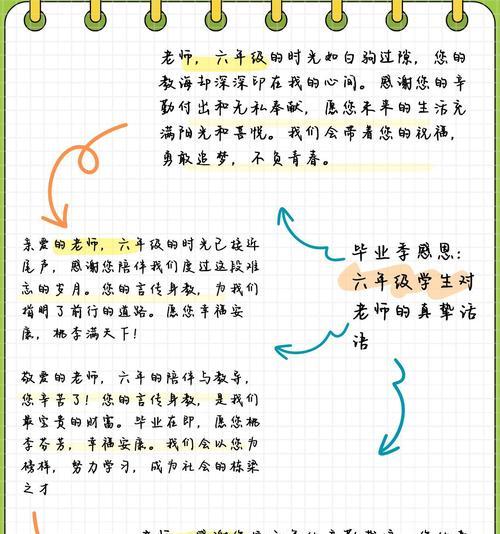 老师，六年级的时光如白驹过隙，您的
教诲却深深印在我的心间。感谢您的辛
勤付出和无私奉献，愿您未来的生活充
满阳光和喜悦。我们会带着您的祝福，
勇敢追梦，不负青春。
亲爱的老师，六年级的时光已接近
尾声，感谢您陪伴我们度过这段难
忘的岁月。您的言传身教，为我们
指明了前行的道路。愿您幸福安
康，桃李满天下！
毕业季感恩：
六年级学生对
老师的真挚话
语
敬爱的老师，六年的陪伴与教导，
您辛苦了！您的言传身教，是我们
最宝贵的财富。毕业在即，愿您桃
李芬芳，幸福安康。我们会以您为
榜样，努力学习，成为社会的栋梁
之才